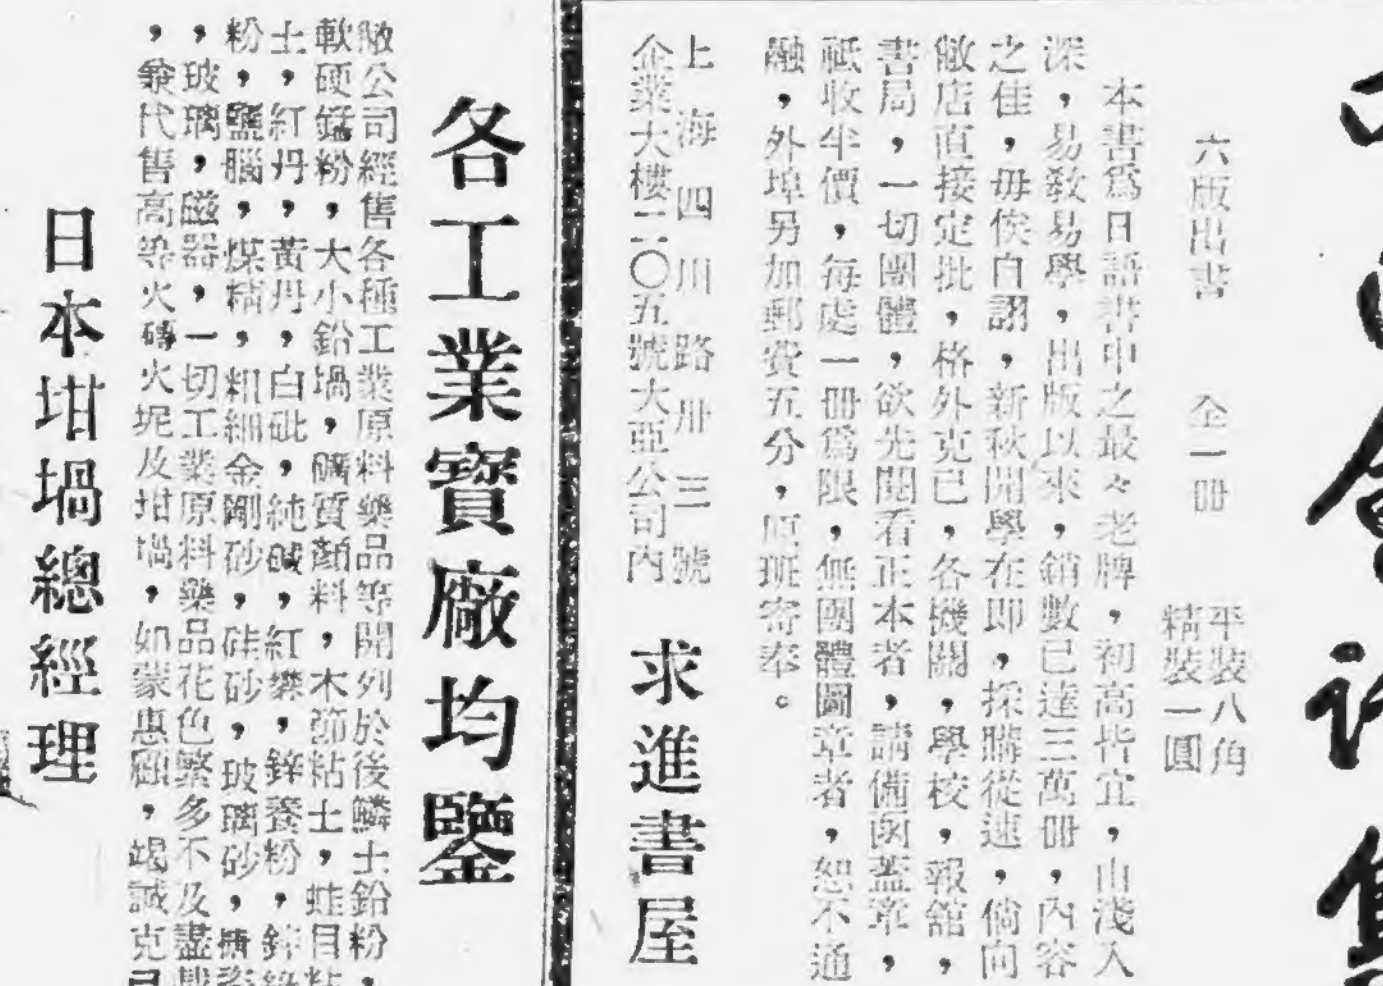 會話集
六版出書 全一冊 平裝八角
精裝一圓
本書爲日語書中之最々老牌，初高皆宜，由淺入
深，易敎易學，出版以來，銷數已達三萬冊，內容
之佳，毋俟自詡，新秋開學在即，採購從速，倘向
敝店直接定批，格外克己，各機關，學校，報舘，
書局，一切團體，欲先閱看正本者，請備函蓋章，
祇收半價，每處一冊爲限，無團體圖章者，恕不通
融，外埠另加郵費五分，原班寄奉。
上海四川路卅三號
企業大樓二〇五號大亞公司內
求進書屋
各工業寶廠均鑒
敝公司經售各種工業原料藥品等開列於後鱗土鉛粉，
軟硬錳粉，大小鉛堝，礦質顏料，木節粘土，蛙目粘
土，紅丹，黃丹，白砒，純碱，紅礬，鋅養粉，鋅
粉，鹽腦，煤精，粗細金剛砂，硅砂，玻璃砂，
，玻璃，磁器，一切工業原料藥品花色繁多不及盡載
，兼代售高等火磚火坭及坩堝，如蒙惠顧，竭誠克己
日本坩堝總經理